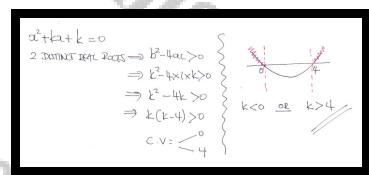 x²+kx+k=0
2 DISTINCT REAL ROOTS ⟹ b²-4ac>0
⟹ k²-4×1×k>0
⟹ k²-4k>0
⟹ k(k-4)>0
C.V = < 0
4
0 4
k<0 OR k>4